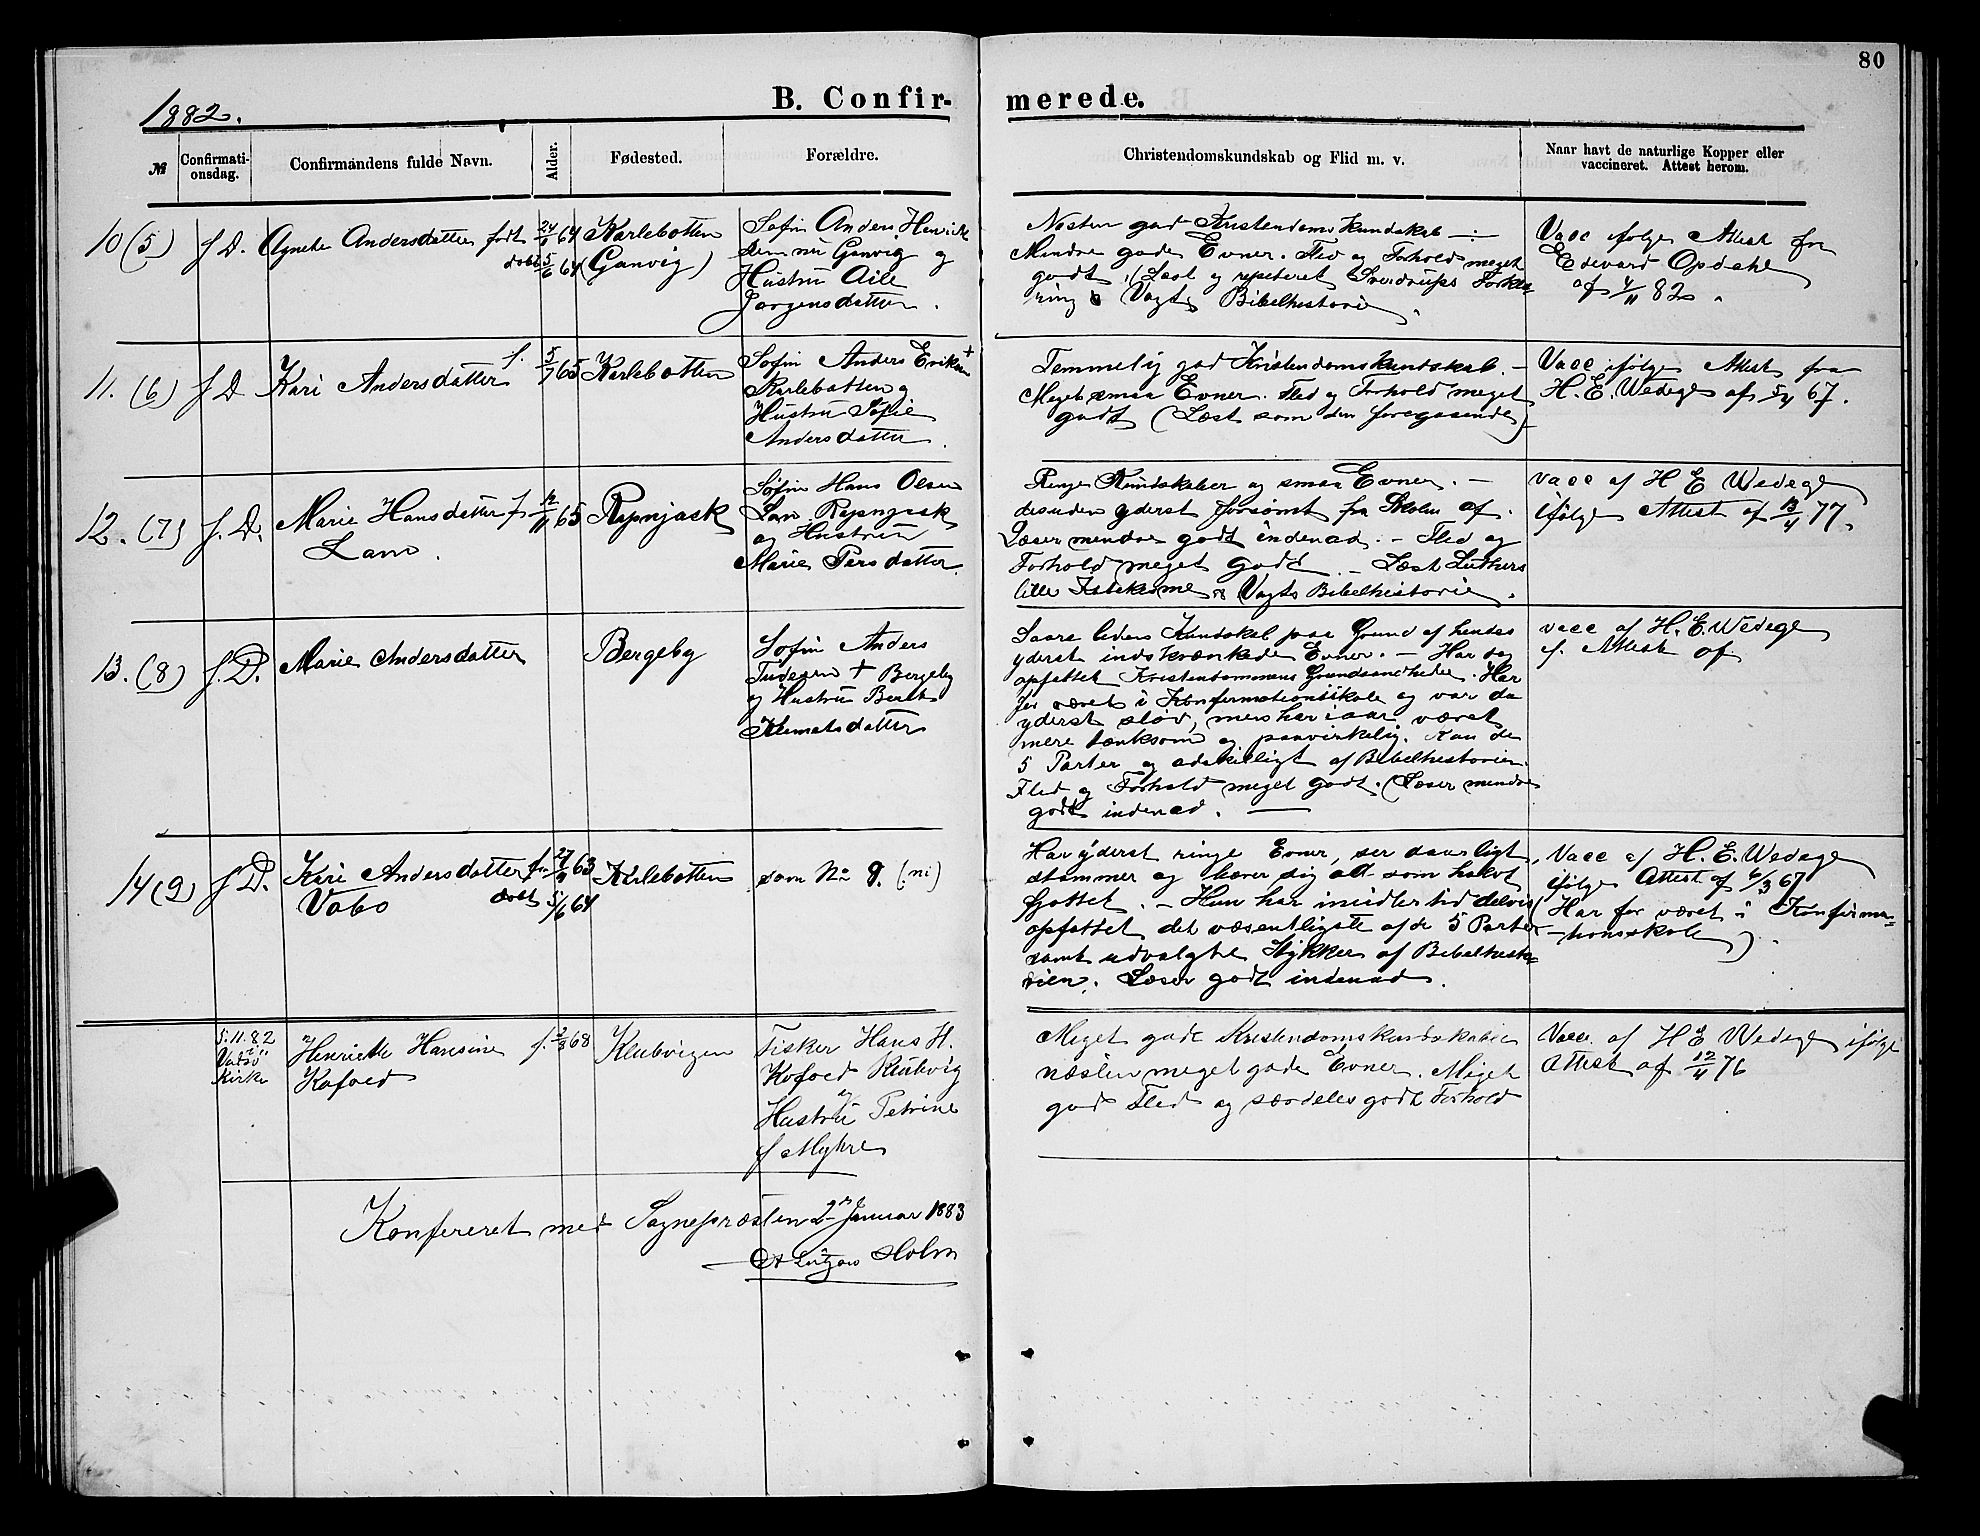 80
1882.
B. Confir-
merede.
№
Confirmati-
onsdag.
Confirmandens fulde Navn.
Alder.
Fødested.
Forældre.
Christendomskundskab og Flid m. v.
Naar havt de naturlige Kopper eller
vaccineret. Attest herom.
10 (5)
f D.
Agnethe Andersdatter født
døbt 5/6 64
Karlebotten
(Ganvig)
Søfin Anders Henrik
sen nu Ganvig og
Hustru
Jørgensdatter.
Næsten god Kristendomskundskab
Mindre gode Evner. Flid og Forhold meget
godt. (Læst og repeteret Sverdrups Forkla-
ring & Vogts Bibelhistorie.
Vacc ifølge Attest fra
Edevard Opdahl
af 4/11 82.
11. (6)
f D
Kari Andersdatter f.
5/7 65
Karlebotten
Søfin Anders Eriksen +
Karlebotten og
Hustru Sofie
Andersdatter.
Temmelig god Kristendomskundskab. -
Meget smaa Evner. Flid og Forhold meget
godt (Læst som den foregaaende)
Vacc ifølge Attest fra
H. E. Wedege af 5/4 67.
12. (7)
f. D.
Marie Hansdatter f
Lano.
65
Søfin Hans Olsen
og Hustru
Marie Persdatter.
Ringe Kundskaber og smaa Evner. -
desuden yderst forsømt fra Skolen af.
Læser mindre godt indenad. - Flid og
Forhold meget godt. - Læst Luthers
lille Katekisme & Vogts Bibelhistorie.
Vacc af H E Wedege
ifølge Attest af 13/4 77.
13. (8)
f. D.
Marie Andersdatter
Bergeby
Søfin Anders
+ Bergeby
og Hustru Berit
Klemetsdatter
Saare liden Kundskab paa Grund af hendes
yderst indskrænkede Evner. - Har dog
opfattet Kristendommens Grundsandheder. Har
før været i Konfirmationsskole og var da
yderst sløv, men har iaar været
mere tænksom og paavirkelig. Kan de
5 Parter og adskilligt af Bibelhistorien.
Flid og Forhold meget godt. (Læser mindre
godt indenad.
vacc af H. E. Wedege
if. Attest af
14 (9)
f D.
Kari Andersdatter f. 27/9 63
Vabo døbt 5/6 64
Karlebotten
som No 9. (ni)
Har yderst ringe Evner, ser daarligt,
stammer og bærer sig ad som halvt
fjottet. - Hun har imidlertid delvis
opfattet det væsentligste af de 5 Parter
samt udvalgte Stykker af Bibelhisto-
rien. Læser godt indenad.
Vacc af H. E. Wedege
ifølge Attest af 6/3 67
(Har før været i Konfirma-
tionsskole).
5.11.82
Vadsø
Kirke
Henriette Hansine f. 2/8 68
Kofoed
Klubvigen
Fisker Hans H.
Kofoed Klubvig
og
Hustru Petrine
f Myhre
Meget gode Kristendomskundskaber
næsten meget gode Evner. Meget
god Flid og særdeles godt Forhold
Vacc. af H E Wedege ifølge
Attest af 12/4 76
Konfereret med Sognepræsten 2den Januar 1883
Lützow Holm